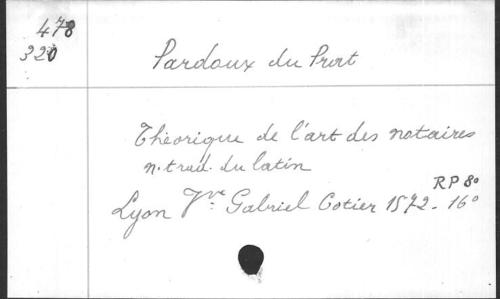 478
320
Pardoux du Prat
Théorique de l'art des notaires
n. trad. du latin
RP 8°
Lyon Vve Gabriel Cotier 1572 - 16°